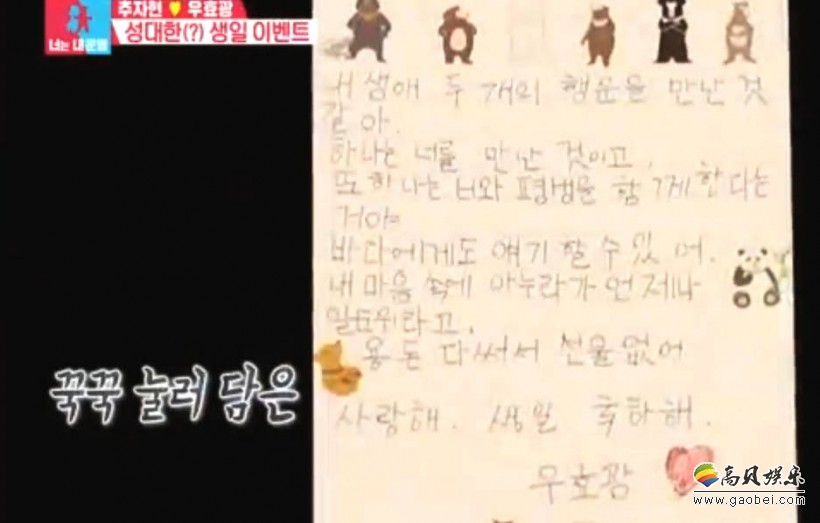 추자현 ♥ 우효광
성대한(?) 생일 이벤트
너는 내 운명
내 생애 두 개의 행운을 만난 것
같아.
하나는 너를 만난 것이고,
또 하나는 너와 평생을 함께한다는
거야.
바다에게도 얘기 할 수 있어.
내 마음 속에 마누라가 언제나
일순위라고.
용돈 다써서 선물 없어
사랑해. 생일 축하해.
우효광
꾹꾹 눌러 담은
高贝娱乐
www.gaobei.com